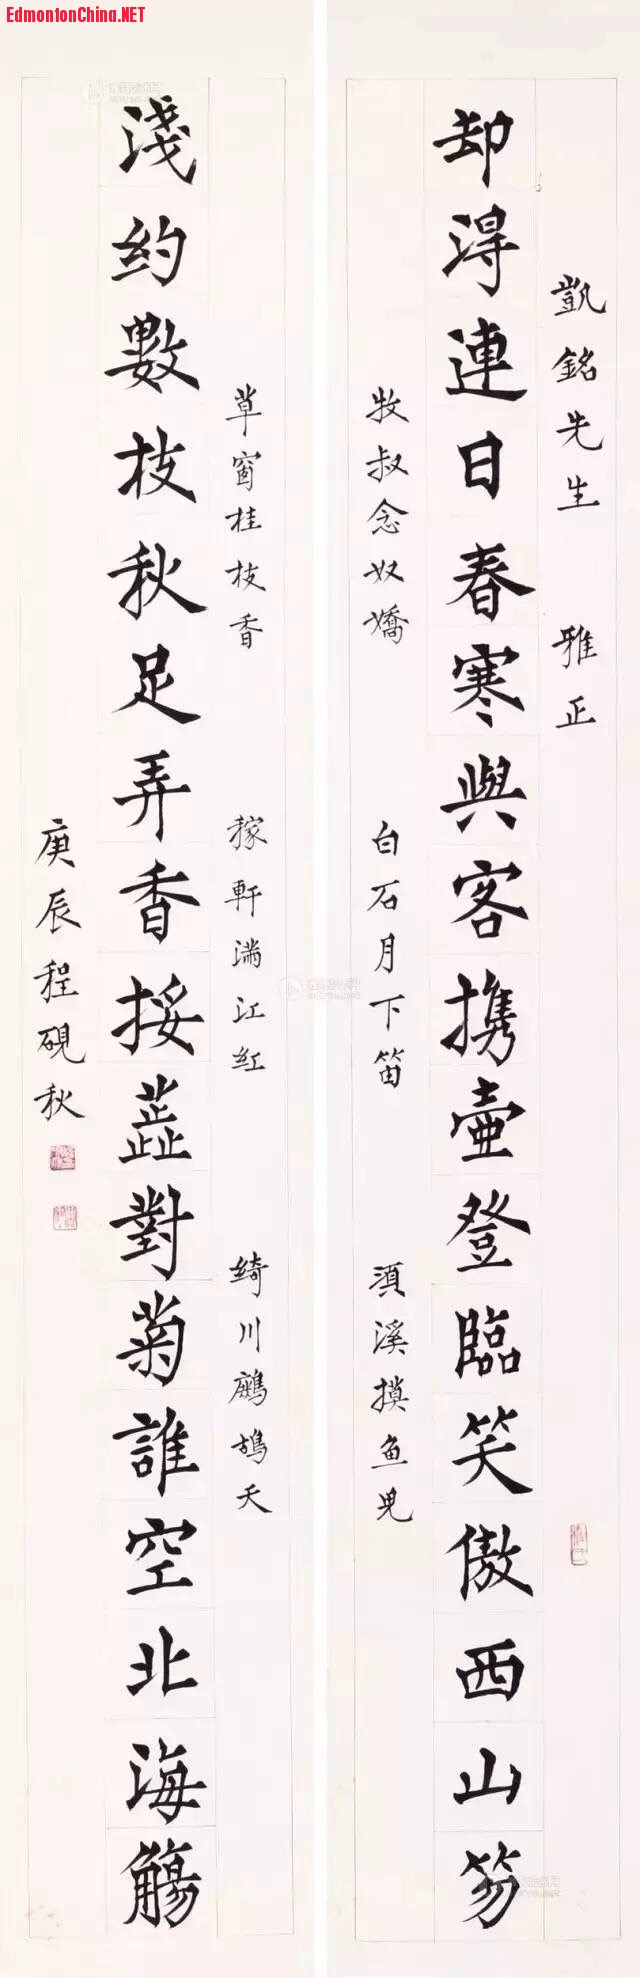 EdmontonChina.NET
凱銘先生 雅正
却淂連日春寒與客携壷登臨笑傲西山笏
牧叔念奴嬌 白石月下笛 須溪摸鱼児
草窗桂枝香 稼軒满江红 绮川鷓鴣天
淺约數枝秋足弄香挼蕋對菊誰空北海觴
庚辰程硯秋